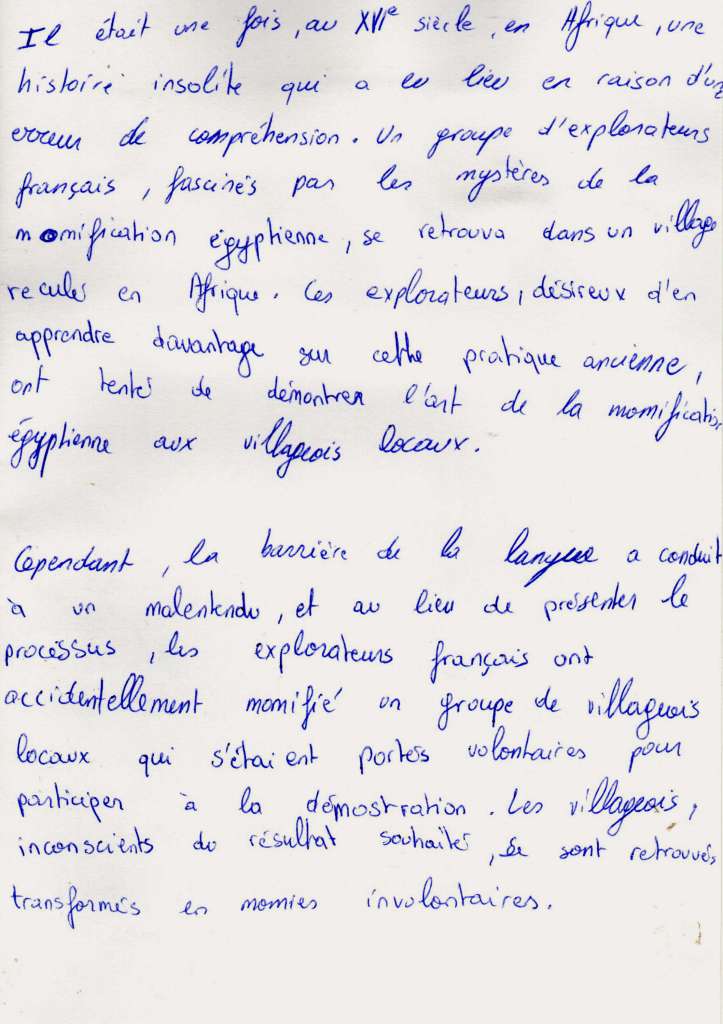 Il était une fois, au XVIe siècle, en Afrique, une
histoire insolite qui a eu lieu en raison d'une
erreur de compréhension. Un groupe d'explorateurs
français, fascinés par les mystères de la
momification égyptienne, se retrouva dans un village
reculé en Afrique. Ces explorateurs, désireux d'en
apprendre davantage sur cette pratique ancienne,
ont tenté de démontrer l'art de la momification
égyptienne aux villageois locaux.
Cependant, la barrière de la langue a conduit
à un malentendu, et au lieu de présenter le
processus, les explorateurs français ont
accidentellement momifié un groupe de villageois
locaux qui s'étaient portés volontaires pour
participer à la démostration. Les villageois,
inconscients du résultat souhaités, se sont retrouvés
transformés en momies involontaires.